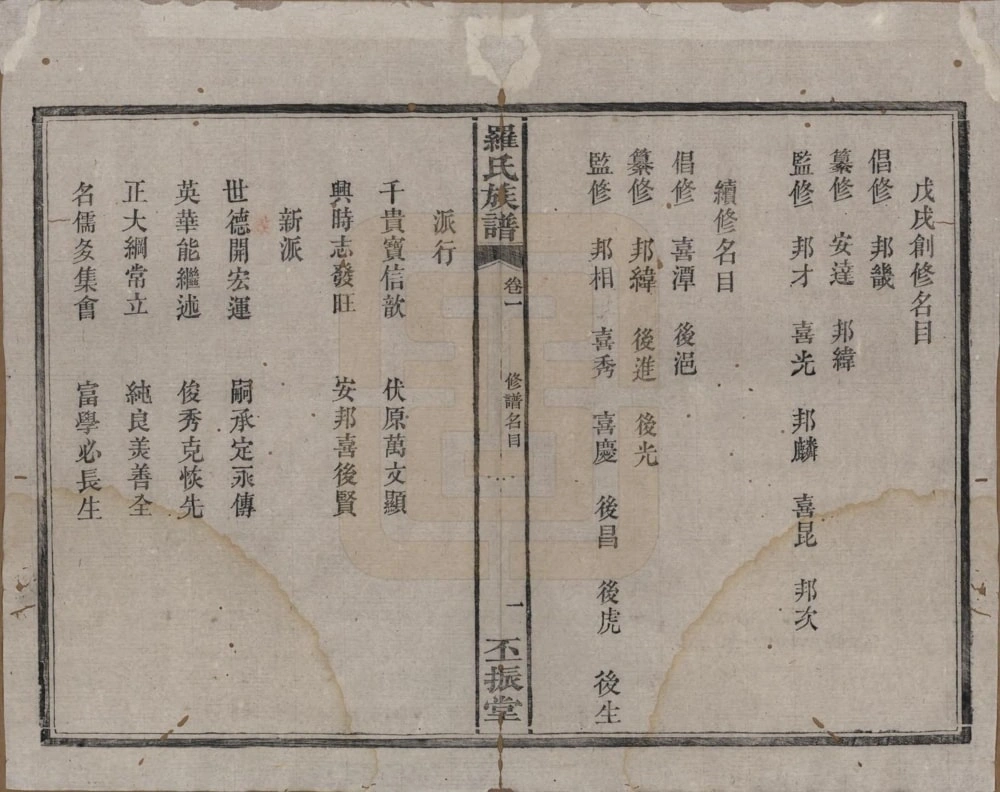 戊戌創修名目
倡修 邦畿
纂修 安達 邦緯
監修 邦才 喜光 邦麟 喜昆 邦次
續修名目
倡修 喜潭 後浥
纂修 邦緯 後進 後光
監修 邦相 喜秀 喜慶 後昌 後虎 後生
羅氏族譜 卷一 修譜名目 一 丕振堂
派行
千貴寶信歆 伏原萬文顯
興時志發旺 安邦喜後賢
新派
世德開宏運 嗣承定永傳
英華能繼述 俊秀克恢先
正大綱常立 純良美善全
名儒多集會 富學必長生